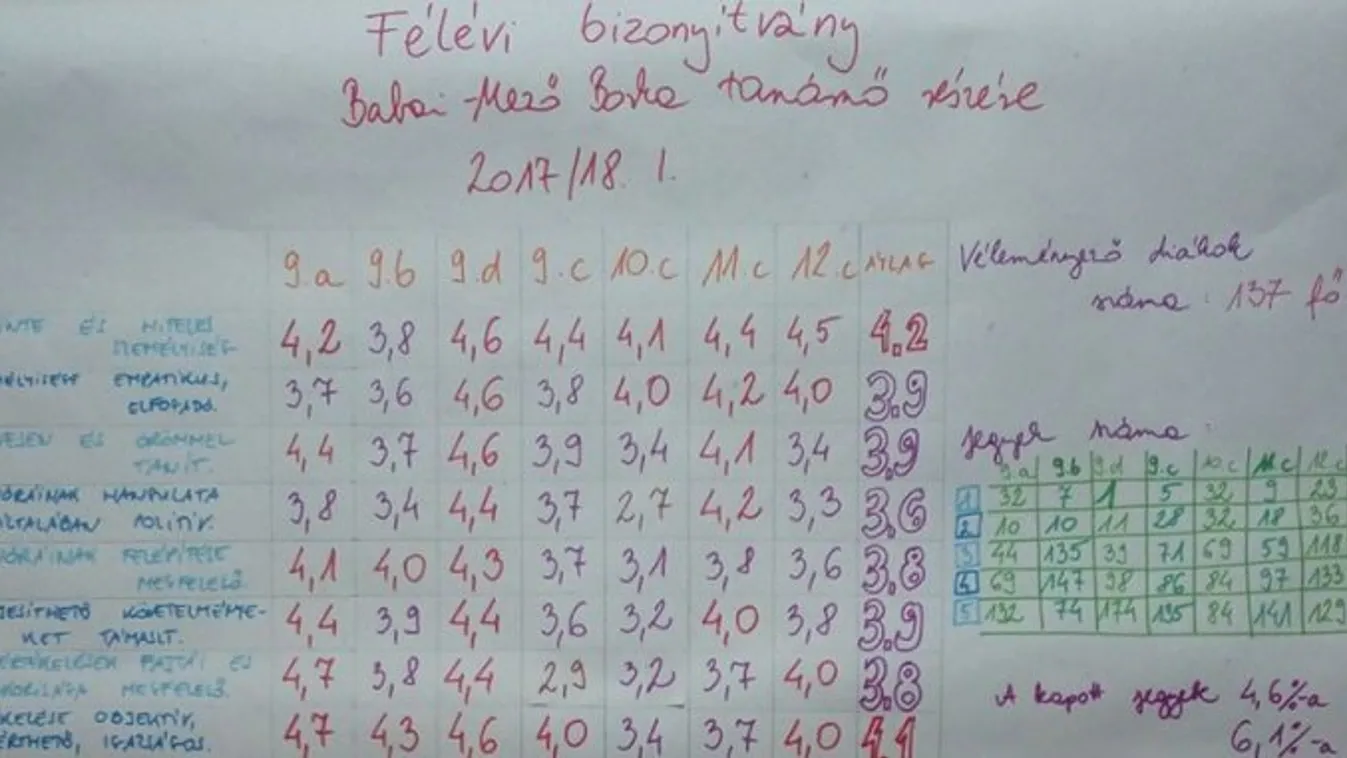 Félévi bizonyítvány
Babai-Mező Borka tanárnő részére
2017/18. I.
9.a 9.b 9.d 9.c 10.c 11.c 12.c ÁTLAG
INTE ÉS HITELES
SZEMÉLYISÉG
4,2 3,8 4,6 4,4 4,1 4,4 4,5 4.2
EMPATIKUS,
ELFOGADÓ.
3,7 3,6 4,6 3,8 4,0 4,2 4,0 3.9
ESEN ÉS ÖRÖMMEL
TANÍT.
4,4 3,7 4,6 3,9 3,4 4,1 3,4 3.9
ÓRÁINAK HANGULATA
ÁLTALÁBAN POZITÍV.
3,8 3,4 4,4 3,7 2,7 4,2 3,3 3.6
ÓRÁINAK FELÉPÍTÉSE
MEGFELELŐ.
4,1 4,0 4,3 3,7 3,1 3,8 3,6 3.8
JESÍTHETŐ KÖVETELMÉNYE-
KET TÁMASZT.
4,4 3,9 4,4 3,6 3,2 4,0 3,8 3.9
ÉRTÉKELÉSEK FAJTÁI ÉS
MEGFELELŐ.
4,7 3,8 4,4 2,9 3,2 3,7 4,0 3.8
KELÉSE OBJEKTÍV,
ÉRTHETŐ, IGAZSÁGOS.
4,7 4,3 4,6 4,0 3,4 3,7 4,0 4.1
Véleményező diákok
száma: 137 fő
Jegyek száma:
9.a 9.b 9.d 9.c 10.c 11.c 12.c
1 32 7 1 5 32 9 23
2 10 10 11 28 32 18 36
3 44 135 39 71 69 59 118
4 69 147 98 86 84 97 133
5 132 74 174 195 84 141 129
A kapott jegyek 4,6%-a
6,1%-a